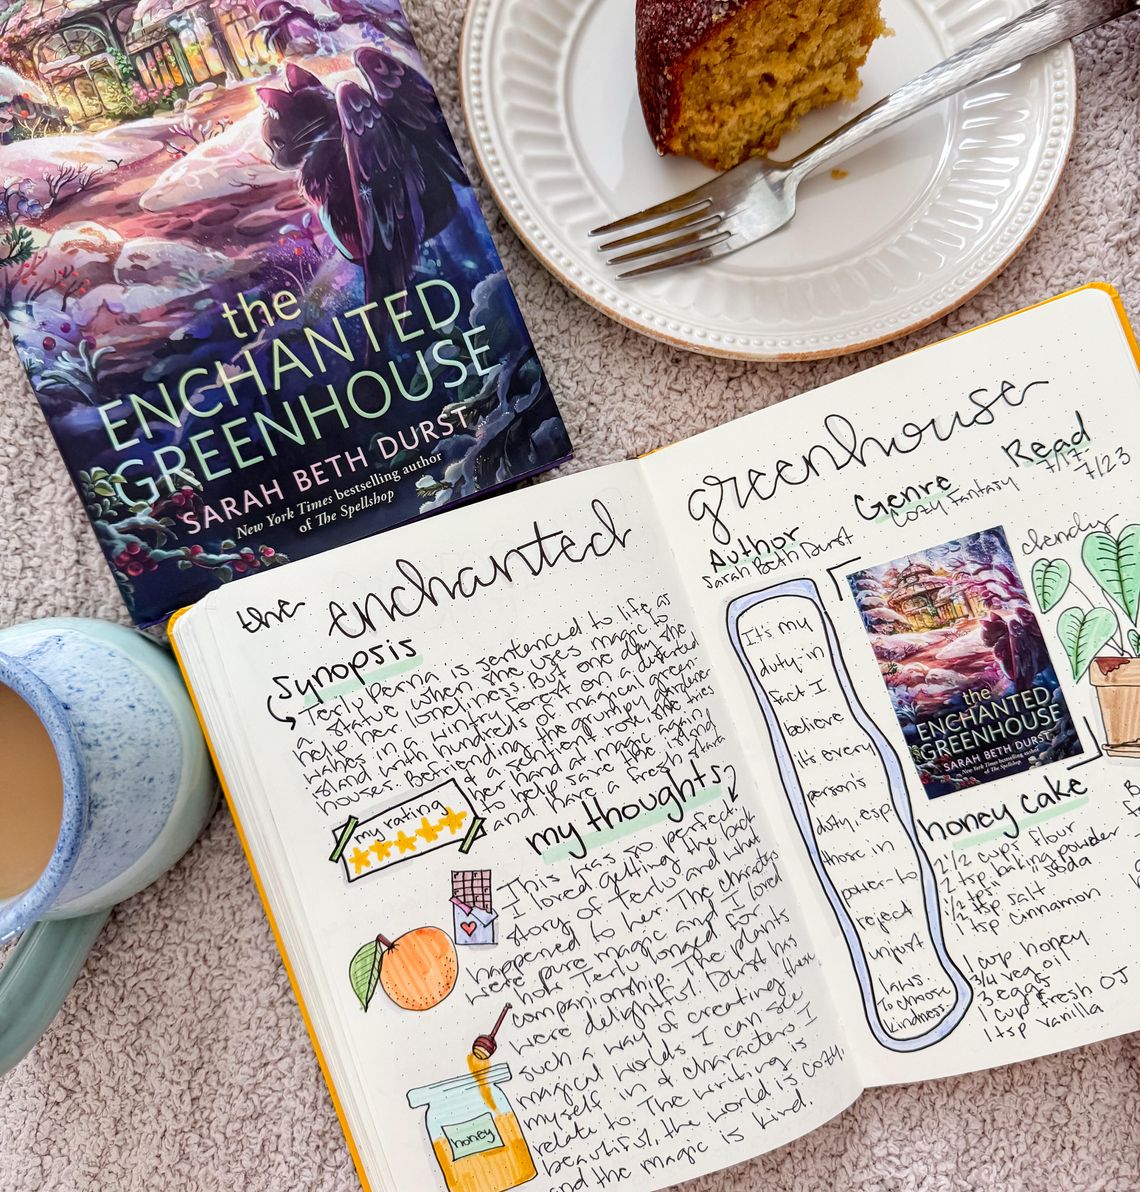 the
ENCHANTED
GREENHOUSE
SARAH BETH DURST
New York Times bestselling author
of The Spellshop
the enchanted
Synopsis
Terlu Perna is sentenced to life as
a statue when she uses magic to
help her loneliness. But one day she
wakes in a wintry forest on a deserted
island with hundreds of magical green-
houses. Befriending the grumpy gardener
& a sentient rose, she tries
her hand at magic again
to help save the island
and have a fresh start
my rating
my thoughts
This was so perfect.
I loved getting the back
story of Terlu and what
happened to her. The characters
were pure magic and I loved
how Terlu longed for
companionship. The plants
were delightful. Durst has
such a way of creating
magical worlds I can see
myself in & characters I
relate to. The writing is
beautiful, the world is cozy,
and the magic is kind.
there
honey
greenhouse
Author
Sarah Beth Durst
Genre
Cozy Fantasy
Read
7/17-
7/23
It's my
duty-in
fact I
believe
it's every
person's
duty, esp.
those in
power-to
reject
unjust
laws
To choose
kindness.
the
ENCHANTED
GREENHOUSE
SARAH BETH DURST
New York Times bestselling author
of The Spellshop
honey cake
1 1/2 cups flour
2 tsp baking powder
1/2 tsp " soda
1/2 tsp salt
1 tsp cinnamon
1 cup honey
3/4 veg oil
3 eggs
1 cup fresh OJ
1 tsp vanilla